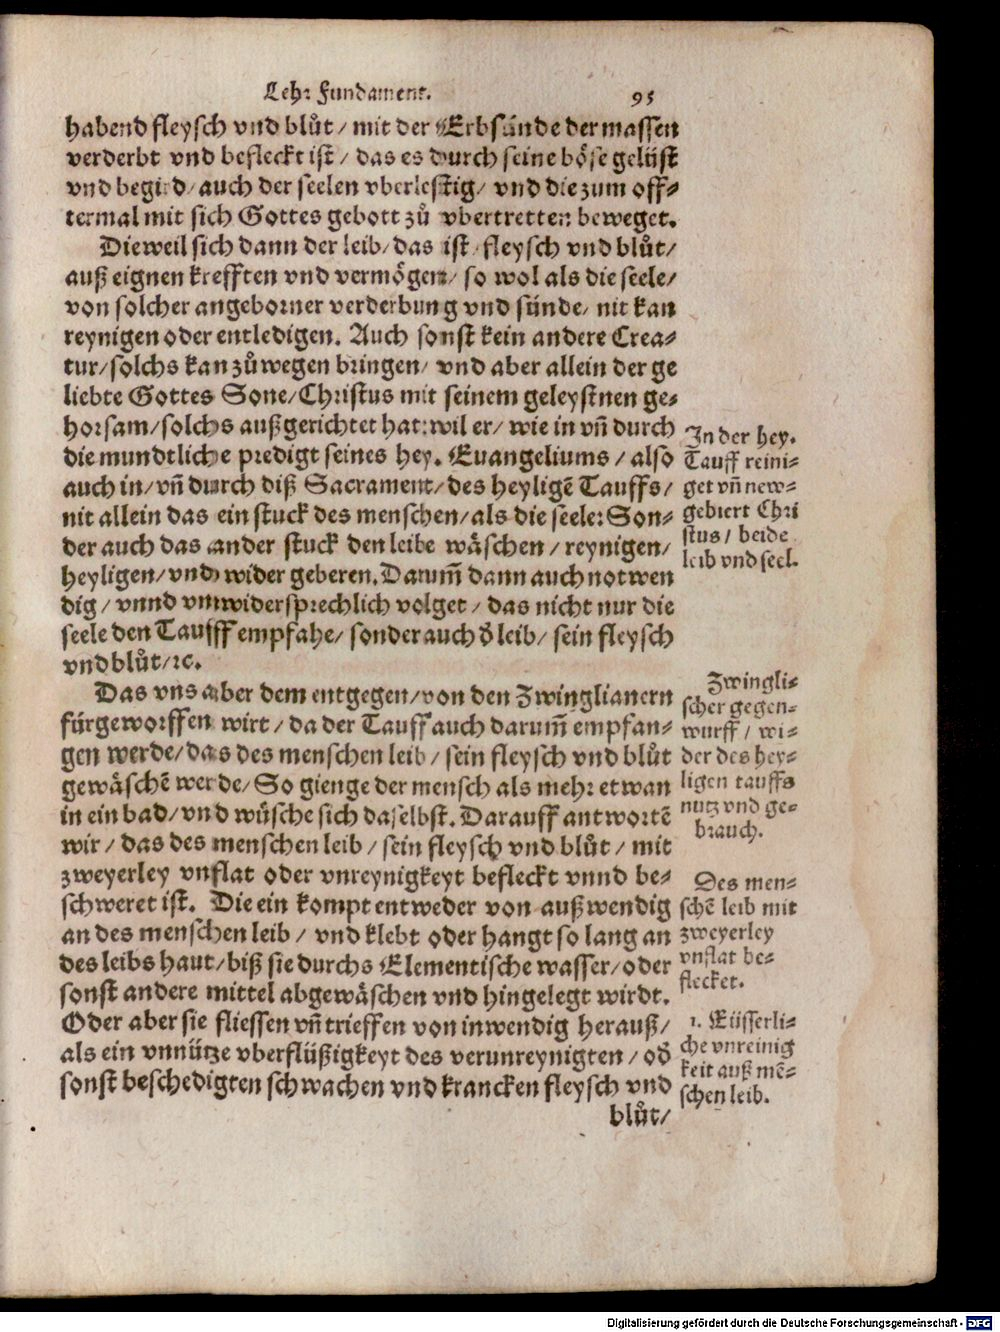 Lehr Fundament. 95
habend fleysch vnd blůt / mit der Erbsünde der massen
verderbt vnd befleckt ist / das es durch seine böse gelüst
vnd begird / auch der seelen vberlestig / vnd die zum off-
termal mit sich Gottes gebott zů vbertretten beweget.
Dieweil sich dann der leib / das ist / fleysch vnd blůt /
auß eignen krefften vnd vermögen / so wol als die seele /
von solcher angeborner verderbung vnd sünde / nit kan
reynigen oder entledigen. Auch sonst kein andere Crea-
tur / solchs kan zů wegen bringen / vnd aber allein der ge
liebte Gottes Sone / Christus mit seinem geleystnen ge-
horsam / solchs außgerichtet hat: wil er / wie in vñ durch
die mundtliche predigt seines hey. Euangeliums / also
auch in / vñ durch diß Sacrament / des heyligē Tauffs /
nit allein das ein stuck des menschen / als die seele: Son-
der auch das ander stuck den leibe wäschen / reynigen /
heyligen / vnd wider geberen. Darum̃ dann auch notwen
dig / vnnd vnwidersprechlich volget / das nicht nur die
seele den Taufff empfahe / sonder auch d̕ leib / sein fleysch
vnd blůt / ꝛc.
Das vns aber dem entgegen / von den Zwinglianern
fürgeworffen wirt / da der Tauff auch darum̃ empfan-
gen werde / das des menschen leib / sein fleysch vnd blůt
gewäschē werde / So gienge der mensch als mehr etwan
in ein bad / vnd wüsche sich daselbst. Darauff antwortē
wir / das des menschen leib / sein fleysch vnd blůt / mit
zweyerley vnflat oder vnreynigkeyt befleckt vnnd be-
schweret ist. Die ein kompt entweder von außwendig
an des menschen leib / vnd klebt oder hangt so lang an
des leibs haut / biß sie durchs Elementische wasser / oder
sonst andere mittel abgewäschen vnd hingelegt wirdt.
Oder aber sie fliessen vñ trieffen von inwendig herauß /
als ein vnnütze vberflüßigkeyt des verunreynigten / od̕
sonst beschedigten schwachen vnd krancken fleysch vnd
blůt /
In der hey.
Tauff reini-
get vñ new-
gebiert Chri
stus / beide
leib vnd seel.
Zwingli-
scher gegen-
wurff / wi-
der des hey-
ligen tauffs
nutz vnd ge-
brauch.
Des men-
schē leib mit
zweyerley
vnflat be-
flecket.
1. Eüsserli-
che vnreinig
keit auß mē-
schen leib.
Digitalisierung gefördert durch die Deutsche Forschungsgemeinschaft - DFG